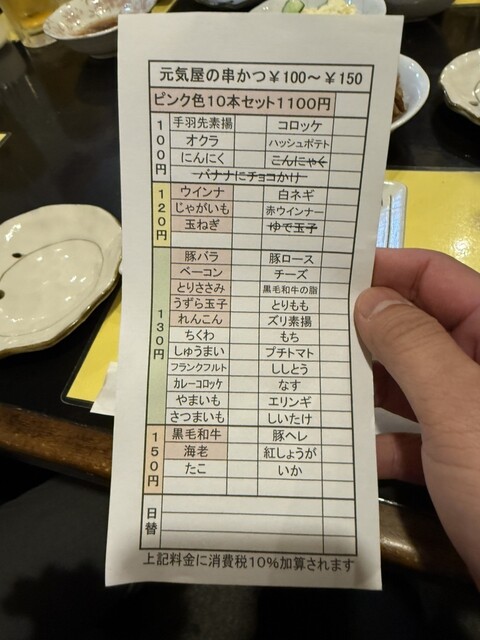 元気屋の串かつ￥100～￥150
ピンク色10本セット1100円
100円
手羽先素揚 コロッケ
オクラ ハッシュポテト
にんにく こんにゃく
バナナにチョコかけ
120円
ウインナ 白ネギ
じゃがいも 赤ウインナー
玉ねぎ ゆで玉子
130円
豚バラ 豚ロース
ベーコン チーズ
とりささみ 黒毛和牛の脂
うずら玉子 とりもも
れんこん ズリ素揚
ちくわ もち
しゅうまい プチトマト
フランクフルト ししとう
カレーコロッケ なす
やまいも エリンギ
さつまいも しいたけ
150円
黒毛和牛 豚ヘレ
海老 紅しょうが
たこ いか
日替
上記料金に消費税10%加算されます